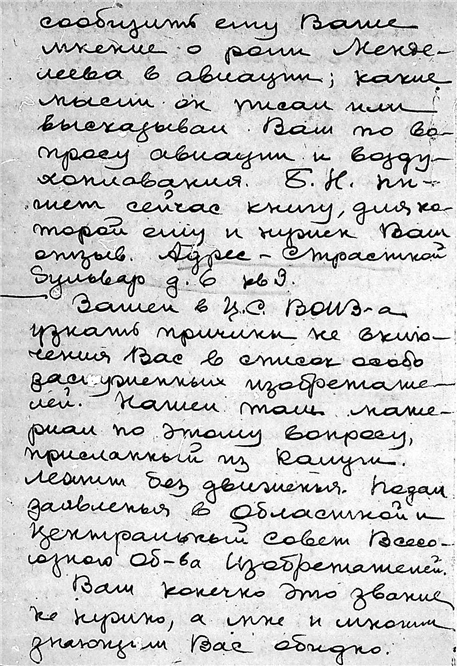 сообщить ему Ваше
мнение о роли Менде-
леева в авиации; какие
мысли он писал или
высказывал Вам по во-
просу авиации и возду-
хоплавания. Б. Н. пи-
шет сейчас книгу, для ко-
торой ему и нужен Ваш
отзыв. Адрес – Страстной
бульвар д. 6 кв 9.
Зашел в Ц.С. ВОИЗ-а
узнать причины не вклю-
чения Вас в список особо
заслуженных изобретате-
лей. Нашел там мате-
риал по этому вопросу,
присланный из Калуги.
Лежит без движенья. Подал
заявленья в Областной и
Центральный совет Всесо-
юзного Об-ва Изобретателей.
Вам конечно это звание
не нужно, а мне и многим
знающим Вас обидно.